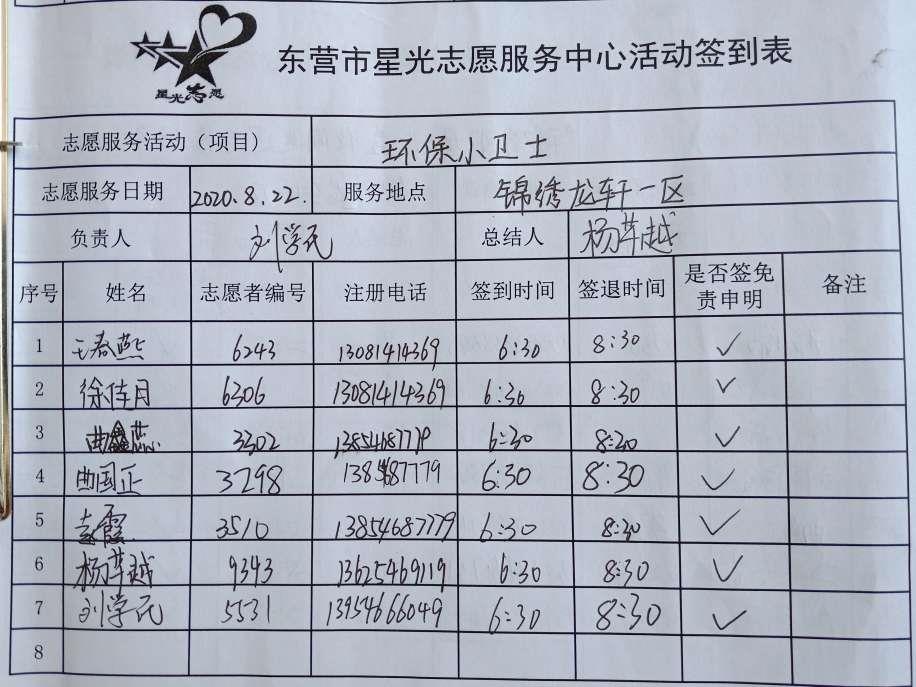 星光志愿
东营市星光志愿服务中心活动签到表
志愿服务活动（项目） 环保小卫士
志愿服务日期 2020.8.22. 服务地点 锦绣龙轩一区
负责人 刘学民 总结人 杨苹越
序号 姓名 志愿者编号 注册电话 签到时间 签退时间 是否签免责申明 备注
1 王春燕 6243 13081414369 6:30 8:30 ✓
2 徐佳月 6306 13081414369 6:30 8:30 ✓
3 曲鑫蕊 3302 13854687779 6:30 8:30 ✓
4 曲国正 3298 6:30 8:30 ✓
5 3510 13854687779 6:30 8:30 ✓
6 杨苹越 9343 13625469119 6:30 8:30 ✓
7 刘学民 5531 13954666049 6:30 8:30 ✓
8